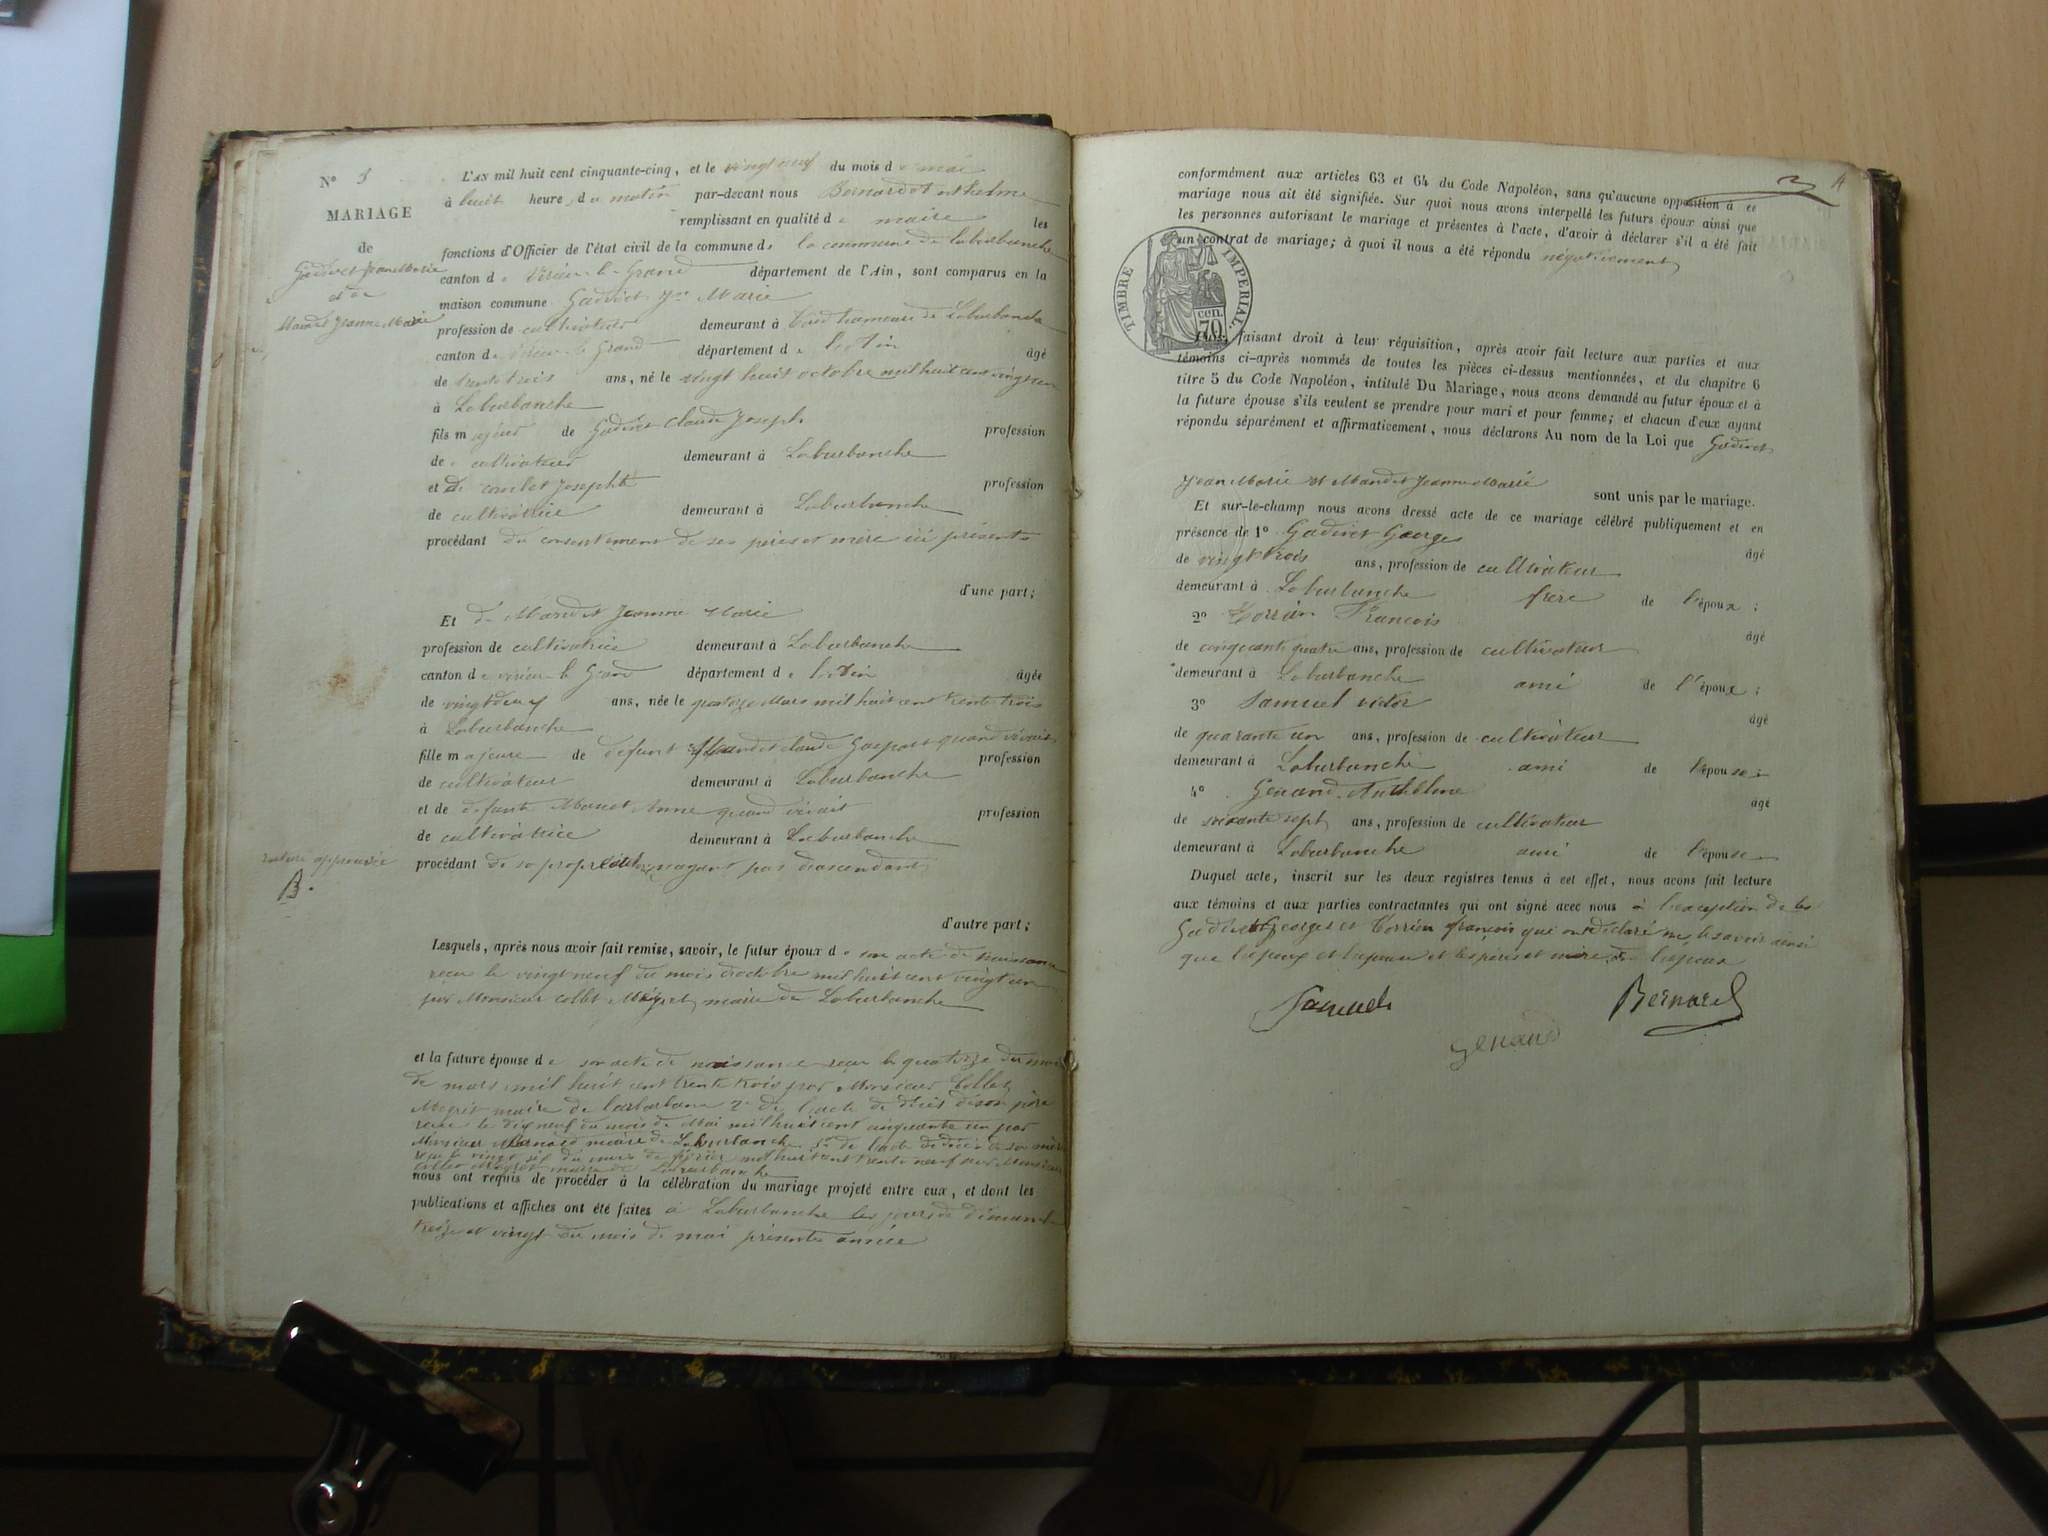 N° 3
MARIAGE
de
Gadivet Jean Marie
et de
Mandet Jeanne Marie
rature approuvée
B.
L'AN mil huit cent cinquante-cinq, et le vingt neuf du mois de mai
à huit heure du matin par-devant nous Bernard anthelme
remplissant en qualité de maire les
fonctions d'Officier de l'état civil de la commune de la commune de laburbanche
canton de Virieu-le-Grand département de l'Ain, sont comparus en la
maison commune Gadivet Jn Marie
profession de cultivateur demeurant à hameau de Laburbanche
canton de Virieu le Grand département de l'Ain âgé
de trente trois ans, né le vingt huit octobre mil huit cent vingt un
à Laburbanche
fils majeur de Gadivet Claude Joseph profession
de cultivateur demeurant à Laburbanche
et de combet Josephte profession
de cultivatrice demeurant à Laburbanche
procédant du consentement de ses père et mère ici présents
d'une part;
Et de Mandet Jeanne Marie
profession de cultivatrice demeurant à Laburbanche
canton de virieu le Grand département de l'Ain âgée
de vingt deux ans, née le quatorze Mars mil huit cent trente trois
à Laburbanche
fille majeure de defunt Mandet claude Gaspard quand vivait profession
de cultivateur demeurant à Laburbanche
et de defunte Anne quand vivait profession
de cultivatrice demeurant à Laburbanche
procédant de sa propre n'ayant pas d'ascendant
d'autre part;
Lesquels, après nous avoir fait remise, savoir, le futur époux de son acte de naissance
reçu le vingt neuf du mois d'octobre mil huit cent vingt un
par Monsieur collet Mégret maire de Laburbanche
et la future épouse de son acte de naissance reçu le quatorze du mois
de mars mil huit cent trente trois par Monsieur Collet
Megret maire de laburbanche 2° de l'acte de décès de son père
reçu le dix neuf du mois de Mai mil huit cent cinquante un par
Monsieur Bernard maire de Laburbanche 3° de l'acte de décès de sa mère
reçu le vingt six du mois de février mil huit cent trente neuf par Monsieur
collet Megret maire de Laburbanche
nous ont requis de procéder à la célébration du mariage projeté entre eux, et dont les
publications et affiches ont été faites à Laburbanche les jours de dimanche
treize et vingt du mois de mai présente année
4
conformément aux articles 63 et 64 du Code Napoléon, sans qu'aucune opposition à ce
mariage nous ait été signifiée. Sur quoi nous avons interpellé les futurs époux ainsi que
les personnes autorisant le mariage et présentes à l'acte, d'avoir à déclarer s'il a été fait
un contrat de mariage; à quoi il nous a été répondu négativement
TIMBRE IMPERIAL.
70 cen.
faisant droit à leur réquisition, après avoir fait lecture aux parties et aux
témoins ci-après nommés de toutes les pièces ci-dessus mentionnées, et du chapitre 6
titre 5 du Code Napoléon, intitulé Du Mariage, nous avons demandé au futur époux et à
la future épouse s'ils veulent se prendre pour mari et pour femme; et chacun d'eux ayant
répondu séparément et affirmativement, nous déclarons Au nom de la Loi que Gadivet
Jean Marie et Mandet Jeanne Marie sont unis par le mariage.
Et sur-le-champ nous avons dressé acte de ce mariage célébré publiquement et en
présence de 1° Gadivet Georges âgé
de vingt trois ans, profession de cultivateur
demeurant à Laburbanche frère de l'époux;
2° Torrien Francois âgé
de cinquante quatre ans, profession de cultivateur
demeurant à Laburbanche ami de l'époux;
3° Samuel victor âgé
de quarante un ans, profession de cultivateur
demeurant à Laburbanche ami de l'épouse;
4° Genand Anthelme âgé
de soixante sept ans, profession de cultivateur
demeurant à Laburbanche ami de l'épouse
Duquel acte, inscrit sur les deux registres tenus à cet effet, nous avons fait lecture
aux témoins et aux parties contractantes qui ont signé avec nous à l'exception de
Gadivet Georges et Torrien françois qui ont déclaré ne le savoir ainsi
que l'époux et l'épouse et les père et mère de l'époux
Samuel
Bernard
Genand